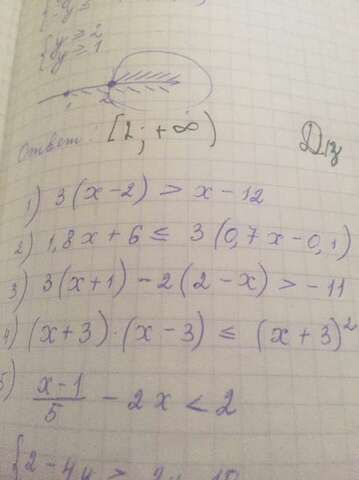 { y ≥ 2
{ y ≥ 1
1 2
Ответ: [2; +∞)
Дз
1) 3(x-2) > x-12
2) 1,8x+6 ≤ 3(0,7x-0,1)
3) 3(x+1)-2(2-x) > -11
4) (x+3)·(x-3) ≤ (x+3)²
5) (x-1)/5 - 2x < 2